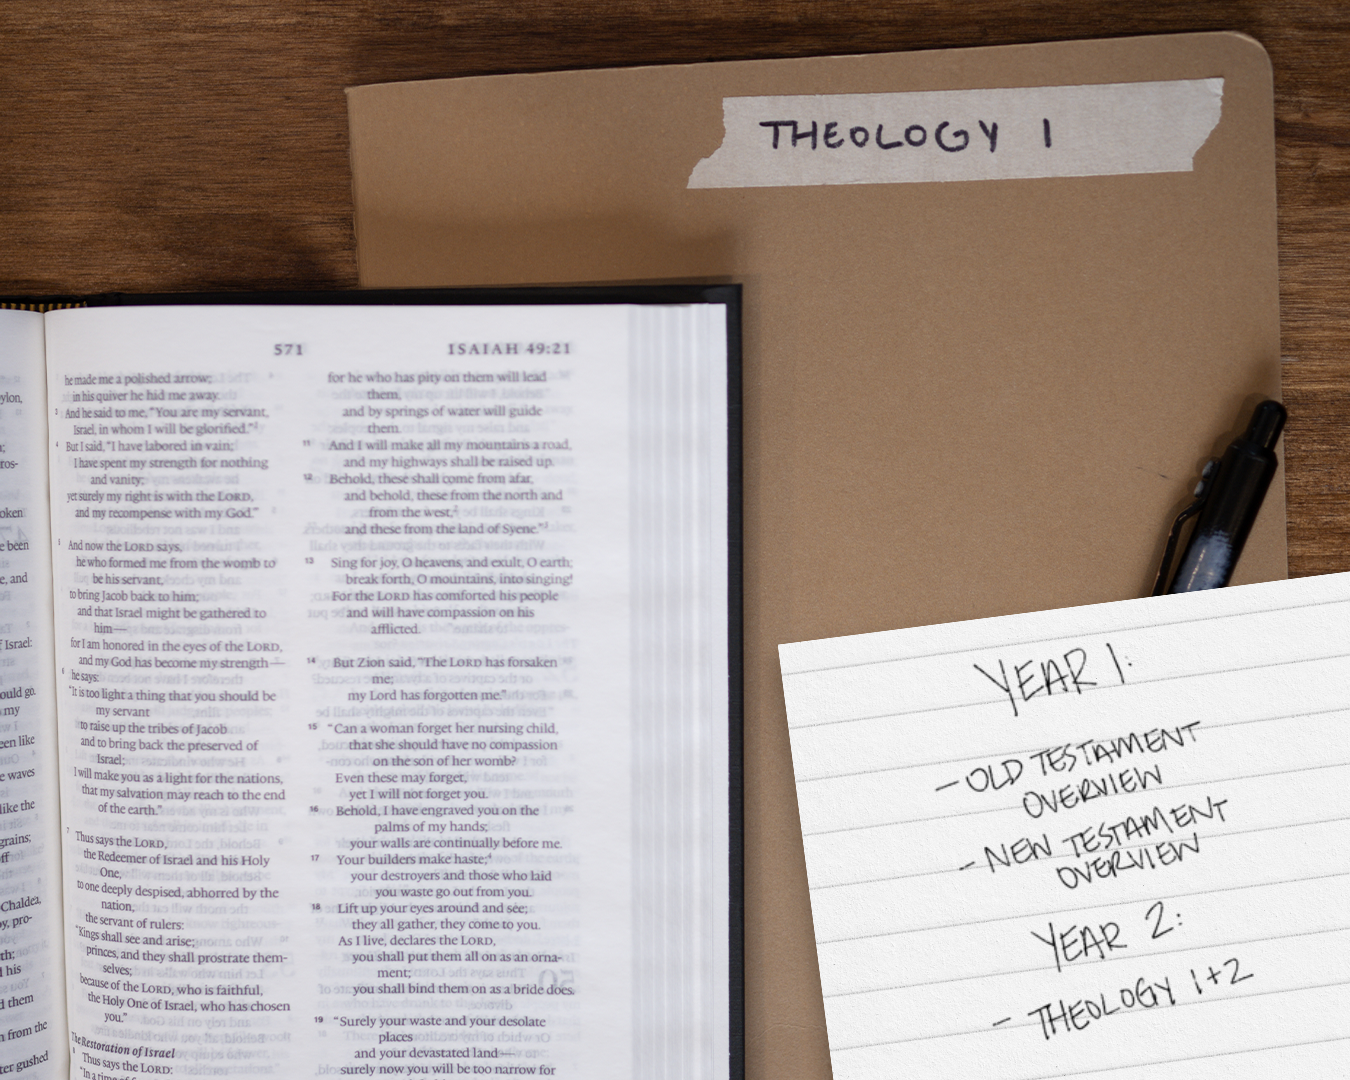 THEOLOGY 1
571
ISAIAH 49:21
he made me a polished arrow;
in his quiver he hid me away.
And he said to me, "You are my servant,
Israel, in whom I will be glorified."
But I said, "I have labored in vain;
I have spent my strength for nothing
and vanity;
yet surely my right is with the LORD,
and my recompense with my God."
And now the LORD says,
he who formed me from the womb to
be his servant,
to bring Jacob back to him;
and that Israel might be gathered to
him—
for I am honored in the eyes of the LORD,
and my God has become my strength—
he says:
"It is too light a thing that you should be
my servant
to raise up the tribes of Jacob
and to bring back the preserved of
Israel;
I will make you as a light for the nations,
that my salvation may reach to the end
of the earth."
Thus says the LORD,
the Redeemer of Israel and his Holy
One,
to one deeply despised, abhorred by the
nation,
the servant of rulers:
"Kings shall see and arise;
princes, and they shall prostrate them-
selves;
because of the LORD, who is faithful,
the Holy One of Israel, who has chosen
you."
The Restoration of Israel
Thus says the LORD:
for he who has pity on them will lead
them,
and by springs of water will guide
them.
11 And I will make all my mountains a road,
and my highways shall be raised up.
12 Behold, these shall come from afar,
and behold, these from the north and
from the west,
and these from the land of Syene."
13 Sing for joy, O heavens, and exult, O earth;
break forth, O mountains, into singing!
For the LORD has comforted his people
and will have compassion on his
afflicted.
14 But Zion said, "The LORD has forsaken
me;
my Lord has forgotten me."
15 "Can a woman forget her nursing child,
that she should have no compassion
on the son of her womb?
Even these may forget,
yet I will not forget you.
16 Behold, I have engraved you on the
palms of my hands;
your walls are continually before me.
17 Your builders make haste;
your destroyers and those who laid
you waste go out from you.
18 Lift up your eyes around and see;
they all gather, they come to you.
As I live, declares the LORD,
you shall put them all on as an orna-
ment;
you shall bind them on as a bride does.
19 "Surely your waste and your desolate
places
and your devastated land—
surely now you will be too narrow for
YEAR 1:
- OLD TESTAMENT
OVERVIEW
- NEW TESTAMENT
OVERVIEW
YEAR 2:
- THEOLOGY 1+2